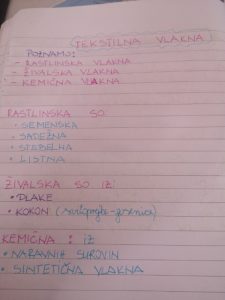 (TEKSTILNA VLAKNA)
POZNAMO:
- RASTLINSKA VLAKNA
- ŽIVALSKA VLAKNA
- KEMIČNA VLAKNA
RASTLINSKA SO:
• SEMENSKA
• SADEŽNA
• STEBELNA
• LISTNA
ŽIVALSKA SO IZ:
• DLAKE
• KOKON (sviloprejke-gosenice)
KEMIČNA: IZ
• NARAVNIH SUROVIN
• SINTETIČNA VLAKNA